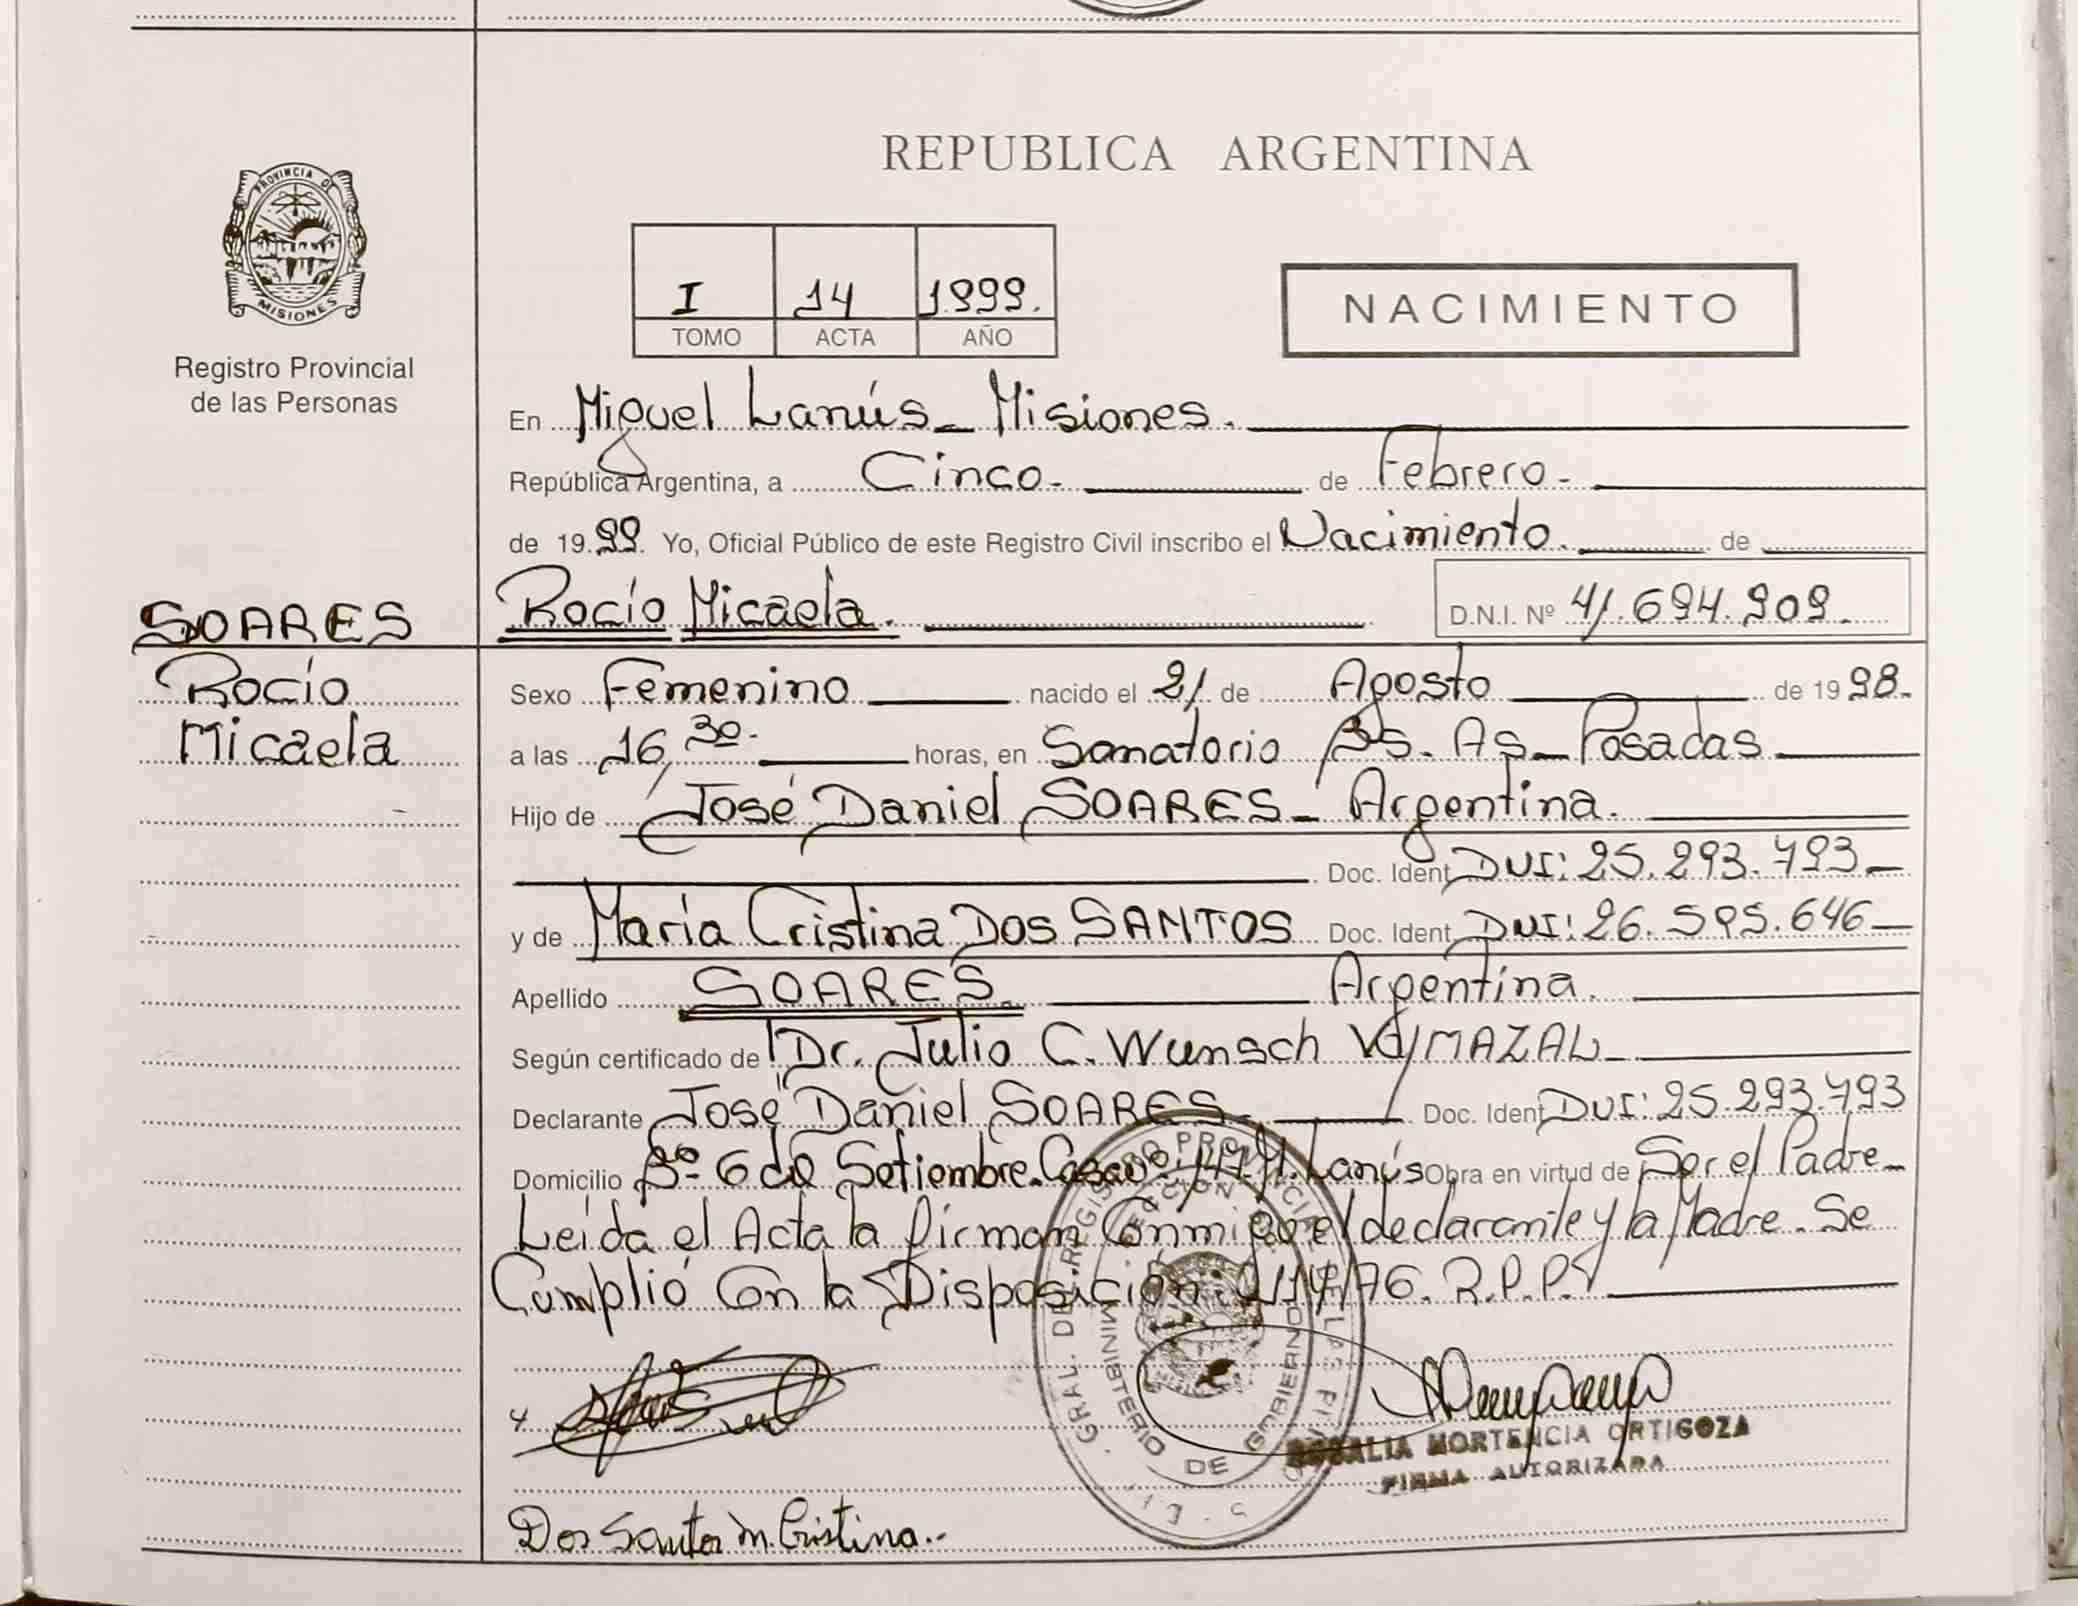 PROVINCIA DE
MISIONES
Registro Provincial
de las Personas
REPUBLICA ARGENTINA
I 14 1999.
TOMO ACTA AÑO
NACIMIENTO
En Miguel Lanús - Misiones.
República Argentina, a Cinco - de Febrero -
de 1999. Yo, Oficial Público de este Registro Civil inscribo el Nacimiento. de
SOARES Rocío Micaela. D.N.I. Nº 41.694.909.
Rocío
Micaela
Sexo Femenino nacido el 21 de Agosto de 1998.
a las 16,30. horas, en Sanatorio Bs. As - Posadas
Hijo de José Daniel SOARES - Argentina.
Doc. Ident DNI: 25.293.793 -
y de María Cristina DOS SANTOS Doc. Ident DNI: 26.595.646 -
Apellido SOARES Argentina.
Según certificado de Dr. Julio C. Wunsch
Declarante José Daniel SOARES. Doc. Ident DNI: 25.293.793
Domicilio Bº 6 de Setiembre. Lanús Obra en virtud de Ser el Padre -
Leída el Acta la firman Conmigo el declarante y la Madre. Se
Cumplió Con la Disposición. R.P.P.
MINISTERIO DE GOBIERNO
ROSALIA HORTENCIA ORTIGOZA
FIRMA AUTORIZADA
Dos Santos M. Cristina.-